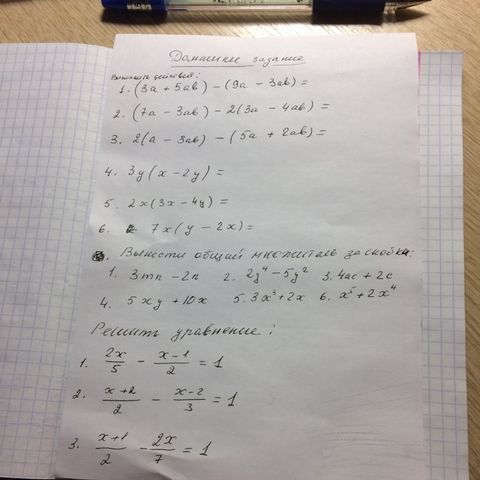 Домашнее задание
Выполнить действия:
1. (3a + 5ab) - (9a - 3ab) =
2. (7a - 3ab) - 2(3a - 4ab) =
3. 2(a - 3ab) - (5a + 2ab) =
4. 3y(x - 2y) =
5. 2x(3x - 4y) =
6. 7x(y - 2x) =
Вынести общий множитель за скобки:
1. 3mn - 2n 2. 2y⁴ - 5y² 3. 4ac + 2c
4. 5xy + 10x 5. 3x³ + 2x 6. x⁵ + 2x⁴
Решить уравнение:
1. 2x/5 - x-1/2 = 1
2. x+2/2 - x-2/3 = 1
3. x+1/2 - 2x/7 = 1